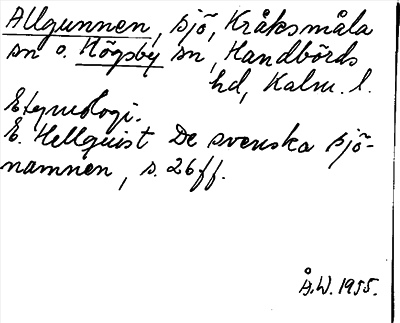 Allgunnen, sjö, Kråksmåla
sn o. Högsby sn, Handbörds
hd, Kalm. l.
Etymologi.
E. Hellquist De svenska sjö-
namnen, s. 26 ff.
Å.W. 1955.